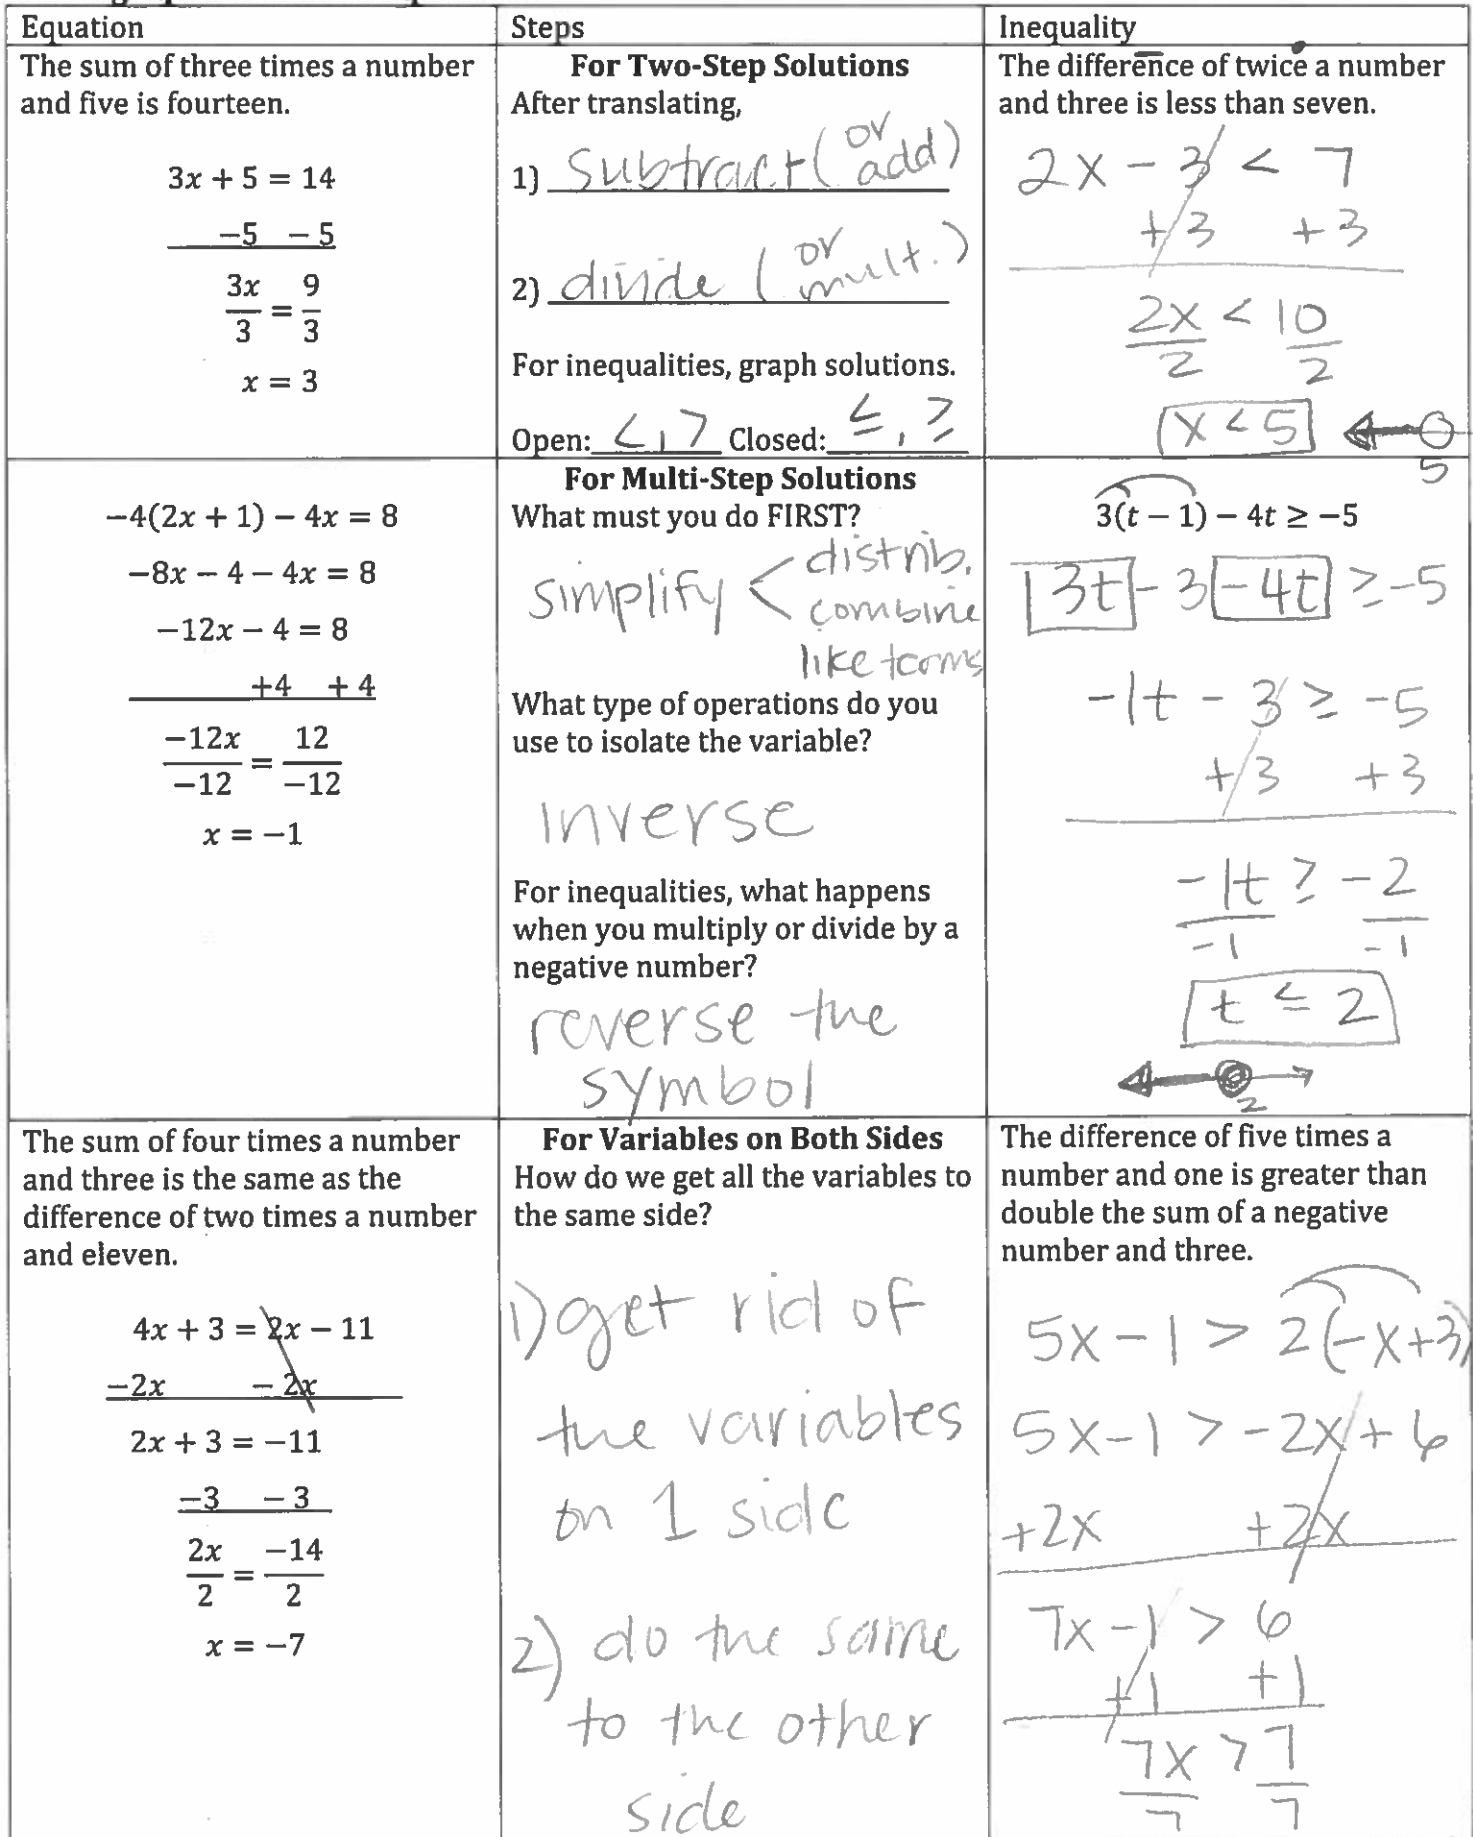 Equation
The sum of three times a number
and five is fourteen.
3x + 5 = 14
−5 − 5
3x/3 = 9/3
x = 3
Steps
For Two-Step Solutions
After translating,
1) subtract (or add)
2) divide (or mult.)
For inequalities, graph solutions.
Open: <, > Closed: ≤, ≥
Inequality
The difference of twice a number
and three is less than seven.
2x − 3 < 7
+3 +3
2x/2 < 10/2
x < 5
5
−4(2x + 1) − 4x = 8
−8x − 4 − 4x = 8
−12x − 4 = 8
+4 + 4
−12x/−12 = 12/−12
x = −1
For Multi-Step Solutions
What must you do FIRST?
simplify < distrib.
combine
like terms
What type of operations do you
use to isolate the variable?
inverse
For inequalities, what happens
when you multiply or divide by a
negative number?
reverse the
symbol
3(t − 1) − 4t ≥ −5
3t − 3 − 4t ≥ −5
−1t − 3 ≥ −5
+3 +3
−1t/−1 ≥ −2/−1
t ≤ 2
2
The sum of four times a number
and three is the same as the
difference of two times a number
and eleven.
4x + 3 = 2x − 11
−2x − 2x
2x + 3 = −11
−3 − 3
2x/2 = −14/2
x = −7
For Variables on Both Sides
How do we get all the variables to
the same side?
1) get rid of
the variables
on 1 side
2) do the same
to the other
side
The difference of five times a
number and one is greater than
double the sum of a negative
number and three.
5x − 1 > 2(−x+3)
5x−1 > −2x + 6
+2x +2x
7x − 1 > 6
+1 +1
7x/7 > 7/7